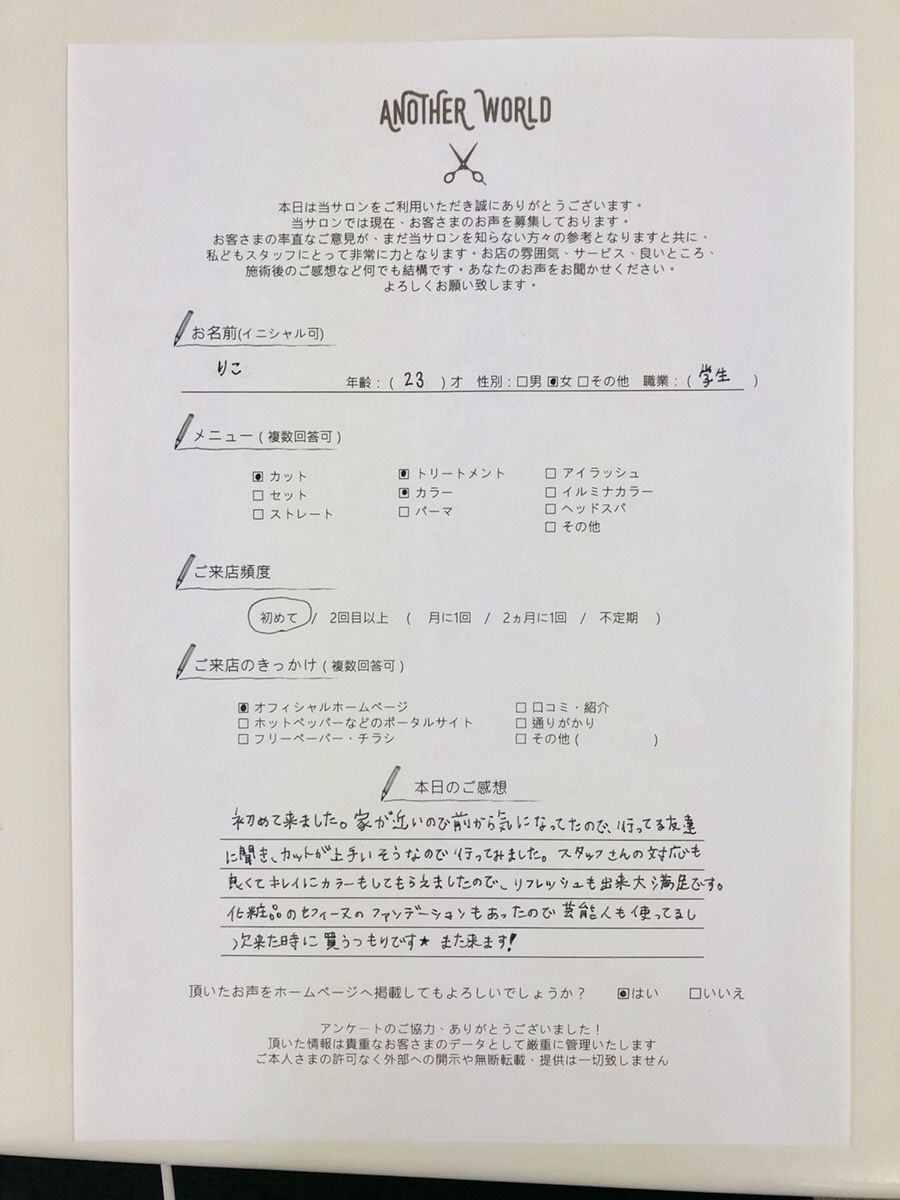 ANOTHER WORLD
本日は当サロンをご利用いただき誠にありがとうございます。
当サロンでは現在、お客さまのお声を募集しております。
お客さまの率直なご意見が、まだ当サロンを知らない方々の参考となりますと共に、
私どもスタッフにとって非常に力となります。お店の雰囲気、サービス、良いところ、
施術後のご感想など何でも結構です。あなたのお声をお聞かせください。
よろしくお願い致します。
お名前(イニシャル可)
りこ
年齢：( 23 )才 性別：□男 ☑女 □その他 職業：( 学生 )
メニュー(複数回答可)
☑ カット ☑ トリートメント □ アイラッシュ
□ セット ☑ カラー □ イルミナカラー
□ ストレート □ パーマ □ ヘッドスパ
□ その他
ご来店頻度
初めて / 2回目以上 ( 月に1回 / 2ヵ月に1回 / 不定期 )
ご来店のきっかけ(複数回答可)
☑ オフィシャルホームページ □ 口コミ・紹介
□ ホットペッパーなどのポータルサイト □ 通りがかり
□ フリーペーパー・チラシ □ その他( )
本日のご感想
初めて来ました。家が近いので前から気になってたので、行ってる友達
に聞き、カットが上手いそうなので行ってみました。スタッフさんの対応も
良くてキレイにカラーもしてもらえましたので、リフレッシュも出来大満足です。
化粧品のセフィーヌのファンデーションもあったので芸能人も使ってるし
次来た時に買うつもりです★ また来ます!
頂いたお声をホームページへ掲載してもよろしいでしょうか？ ☑はい □いいえ
アンケートのご協力、ありがとうございました！
頂いた情報は貴重なお客さまのデータとして厳重に管理いたします
ご本人さまの許可なく外部への開示や無断転載、提供は一切致しません